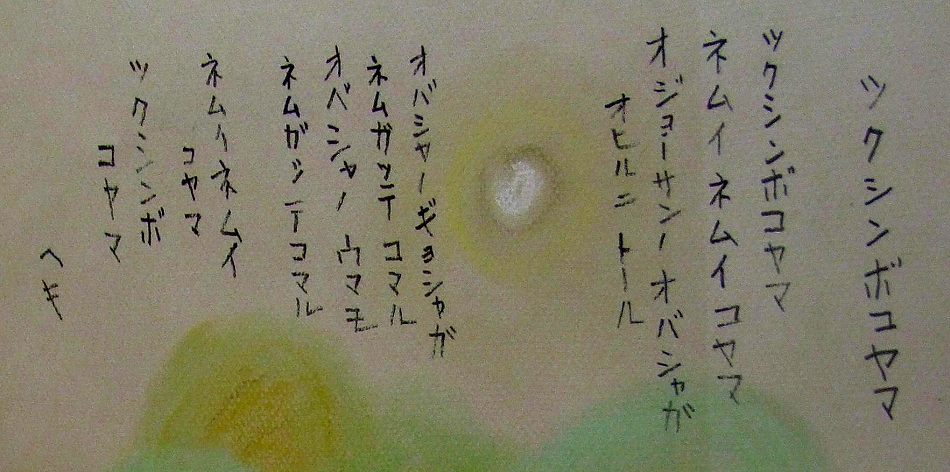 ツクシンボコヤマ
ツクシンボコヤマ
ネムイネムイコヤマ
オジョーサンノオバシャガ
オヒルニトール
オバシャノギョシャガ
ネムガッテコマル
オベシャノウマモ
ネムガッテコマル
ネムイネムイ
コヤマ
ツクシンボ
コヤマ
ヘキ